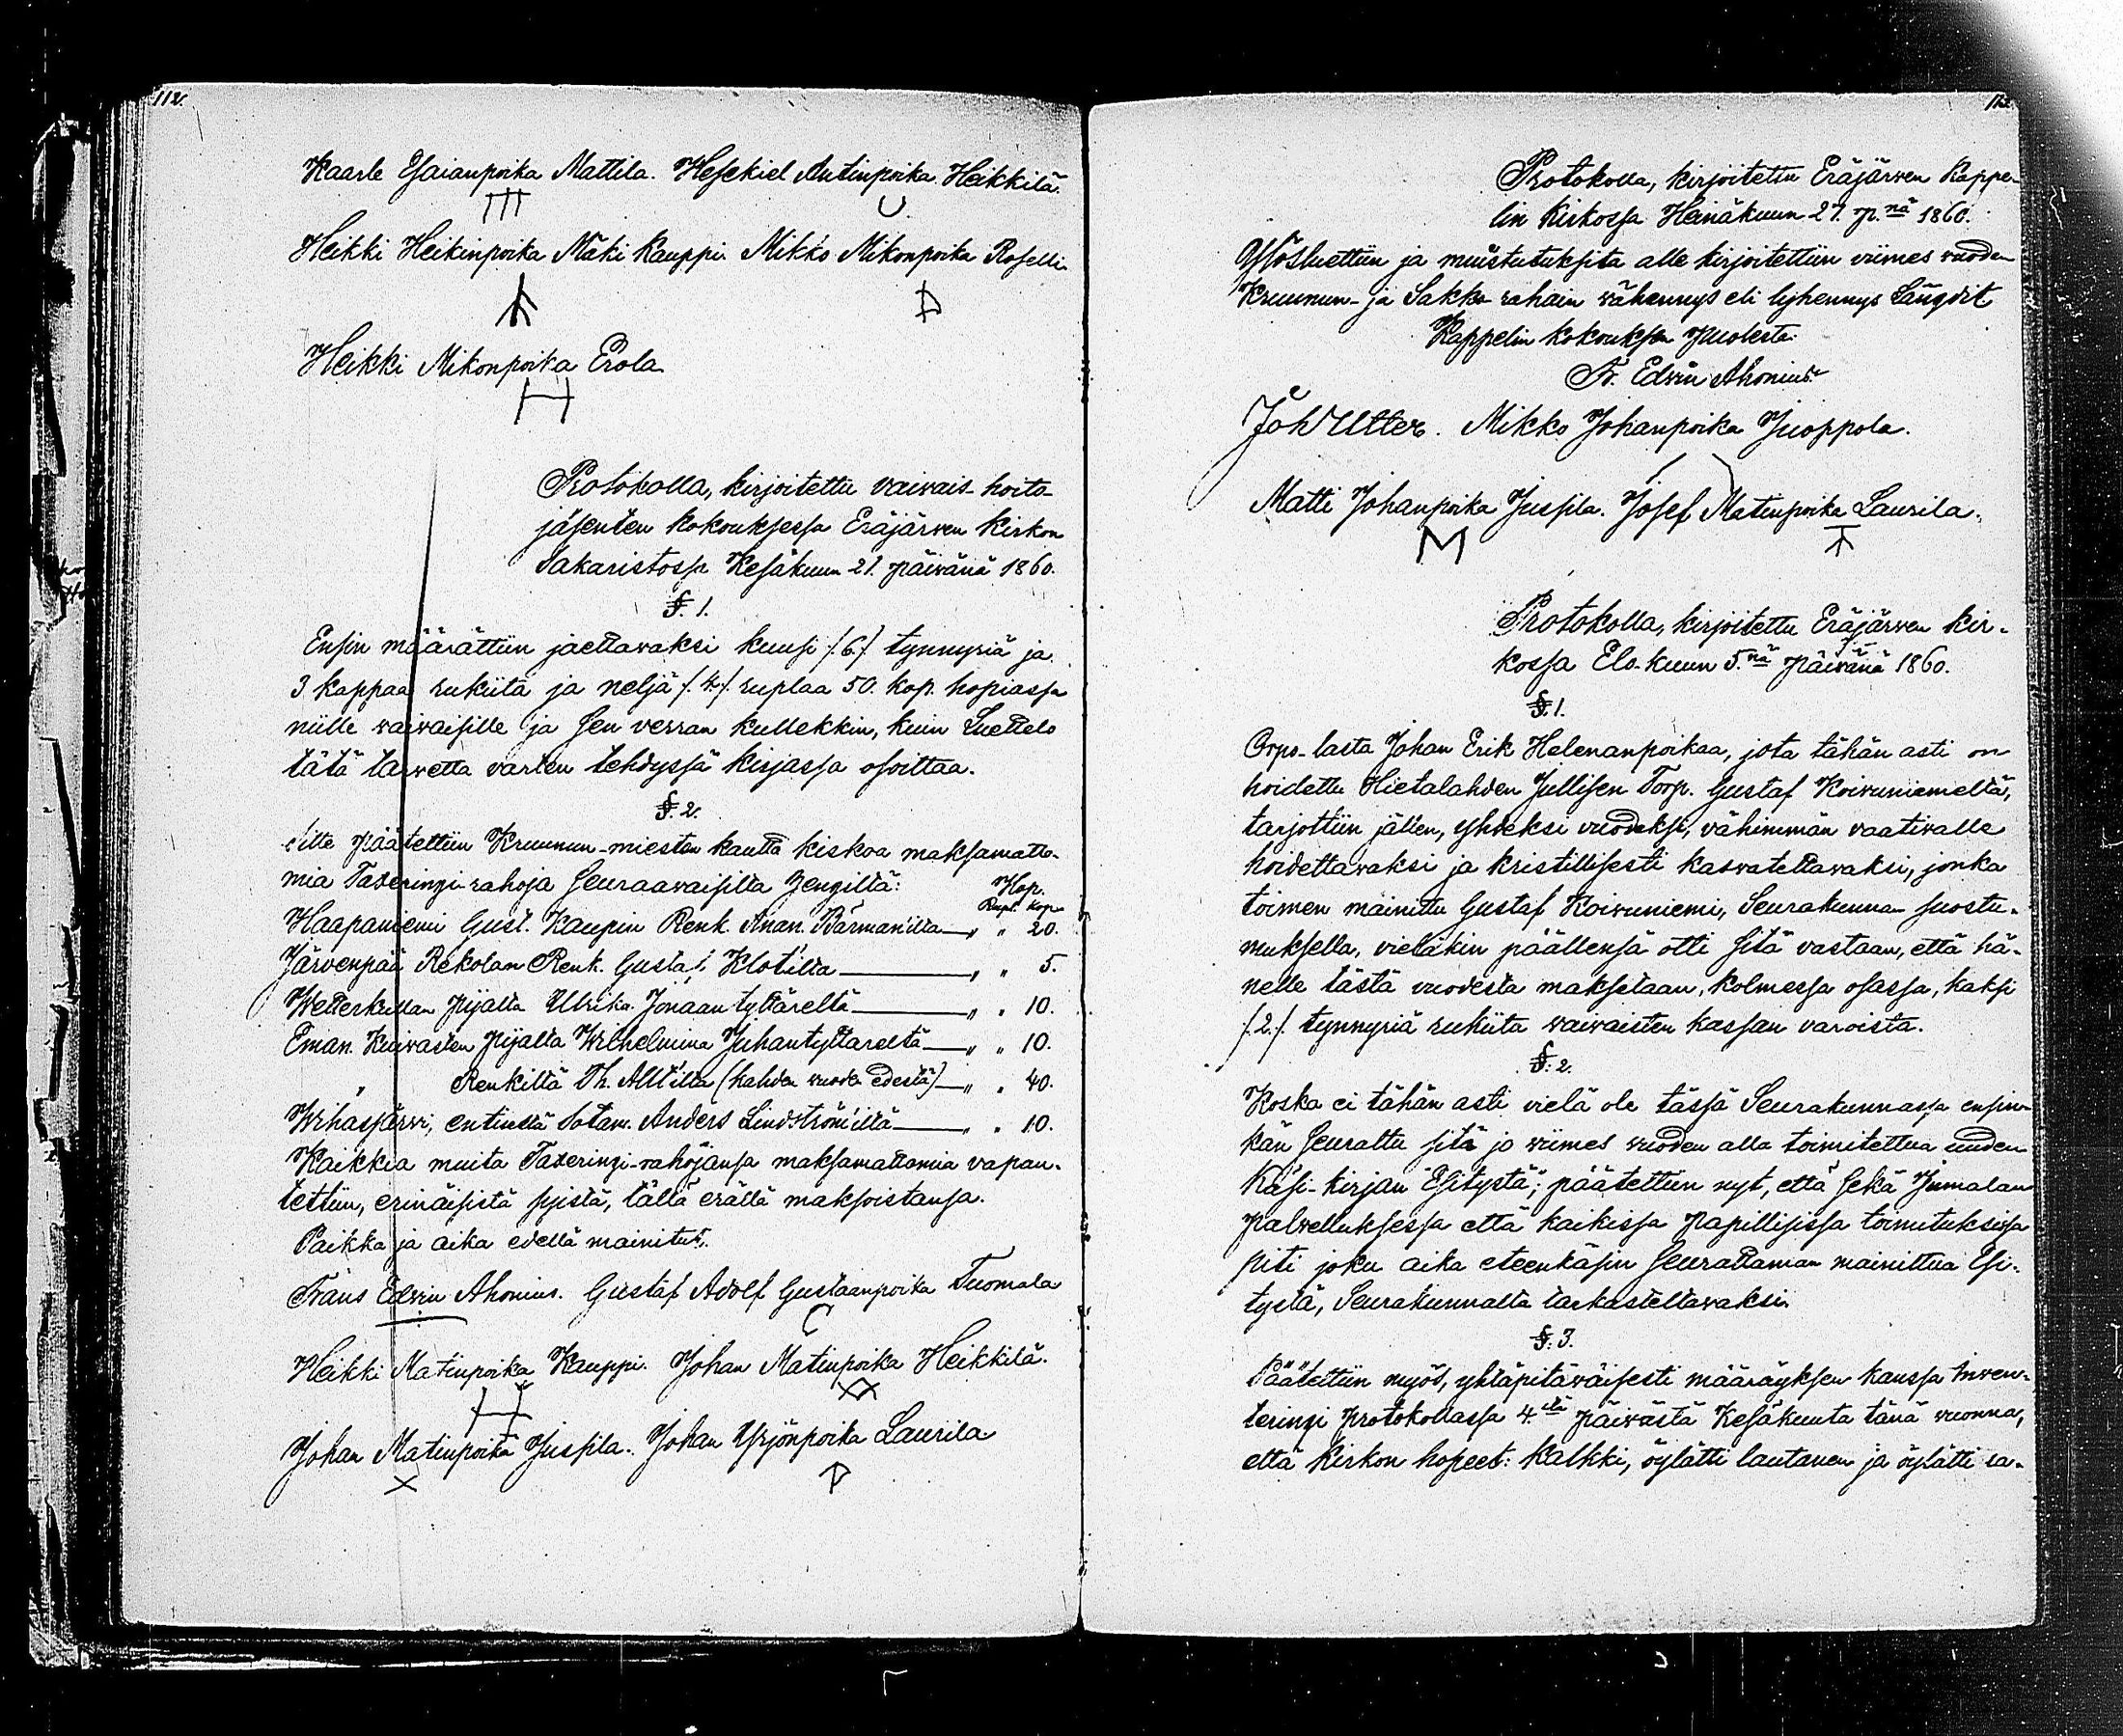 112.
Kaarle Esaianpoika Mattila. Hesekiel Antinpoika Heikkilä.
Heikki Heikinpoika Mäki Kauppi Mikko Mikonpoika Roselli
Heikki Mikonpoika Erola
Protokolla, kirjoitettu vaivais-hoito
jäsenten kokouksessa Eräjärven kirkon
Sakaristossa Kesäkuun 21. päivänä 1860.
§. 1.
Ensin määrättiin jaettavaksi kuusi /.6./ tynnyriä ja
3 kappaa rukiita ja neljä /.4./ ruplaa 50. kop. hopiassa
niille vaivaisille ja sen verran kullekkin, kuin Luettelo
tätä tarvetta varten tehdyssä kirjassa osoittaa.
§. 2.
Sitte päätettiin Kruunun-miesten kautta kiskoa maksamatto-
mia Taxeringi-rahoja seuraavaisilta hengiltä: Hop.
Rupl. kop.
Haapaniemi Gust. Kaupin Renk. Anan. Bärman'ilta — " " 20.
Järvenpää Rekolan Renk. Gustaf Klot'ilta — " " 5.
Wetterkullan pijalta Ulrika Jonaan tyttäreltä — " " 10.
Eman. Kuivasten pijalta Wilhelmina Juhantyttareltä — " " 10.
" Renkiltä Th. Allt'ilta (kahden vuoden edestä) — " " 40.
Wihasjärvi, entinellä Sotam. Anders Lindström'illä — " " 10.
Kaikkia muita Taxeringi-rahojansa maksamattomia vapau-
tettiin, erinäisistä syistä, tällä erällä maksoistansa.
Paikka ja aika edellä mainitut.
Frans Edvin Ahonius. Gustaf Adolf Gustaanpoika Tuomala
Heikki Matinpoika Kauppi. Johan Matinpoika Heikkilä.
Johan Matinpoika Jussila. Johan Yrjönpoika Laurila
113.
Protokolla, kirjoitettu Eräjärven Kappe-
lin Kirkossa Heinäkuun 27. p.nä 1860.
Ylösluettiin ja muistutuksita alle kirjoitettiin viimes vuoden
Kruunun- ja Sakko-rahain vähennys eli lyhennys Längdit
Kappelin kokouksen puolesta:
Fr. Edvin Ahonius
Joh Utter. Mikko Johanpoika Juoppola.
Matti Johanpoika Jussila. Josef Matinpoika Laurila.
Protokolla, kirjoitettu Eräjärven kir-
kossa Elo-kuun 5.nä päivänä 1860.
§. 1.
Orpo-lasta Johan Erik Helenanpoikaa, jota tähän asti on
hoidettu Hietalahden Jullisen Torp. Gustaf Koivuniemeltä,
tarjottiin jällen, yhdeksi vuodeksi, vähimmän vaativalle
hoidettavaksi ja kristillisesti kasvatettavaksi, jonka
toimen mainittu Gustaf Koivuniemi, Seurakunnan suostu-
muksella, vieläkin päällensä otti sitä vastaan, että hä-
nelle tästä vuodesta maksetaan, kolmessa osassa, kaksi
/.2./ tynnyriä rukiita vaivaisten kassan varoista.
§. 2.
Koska ei tähän asti vielä ole tässä Seurakunnassa ensin-
kän seurattu sitä jo viimes vuoden alla toimitettua uuden
Käsi-kirjan Esitystä; päätettiin nyt, että sekä Jumalan
palvelluksessa että kaikissa papillisissa toimituksissa
piti joku aika eteenkäsin seurattaman mainittua Esi-
tystä, Seurakunnalta tarkasteltavaksi.
§. 3.
Päätettiin myös, yhtäpitäväisesti määräyksen kanssa Inven-
teringi protokollassa 4.stä päivästä Kesäkuuta tänä vuonna,
että kirkon hopeet: kalkki, öylätti lautanen ja öylätti ra-